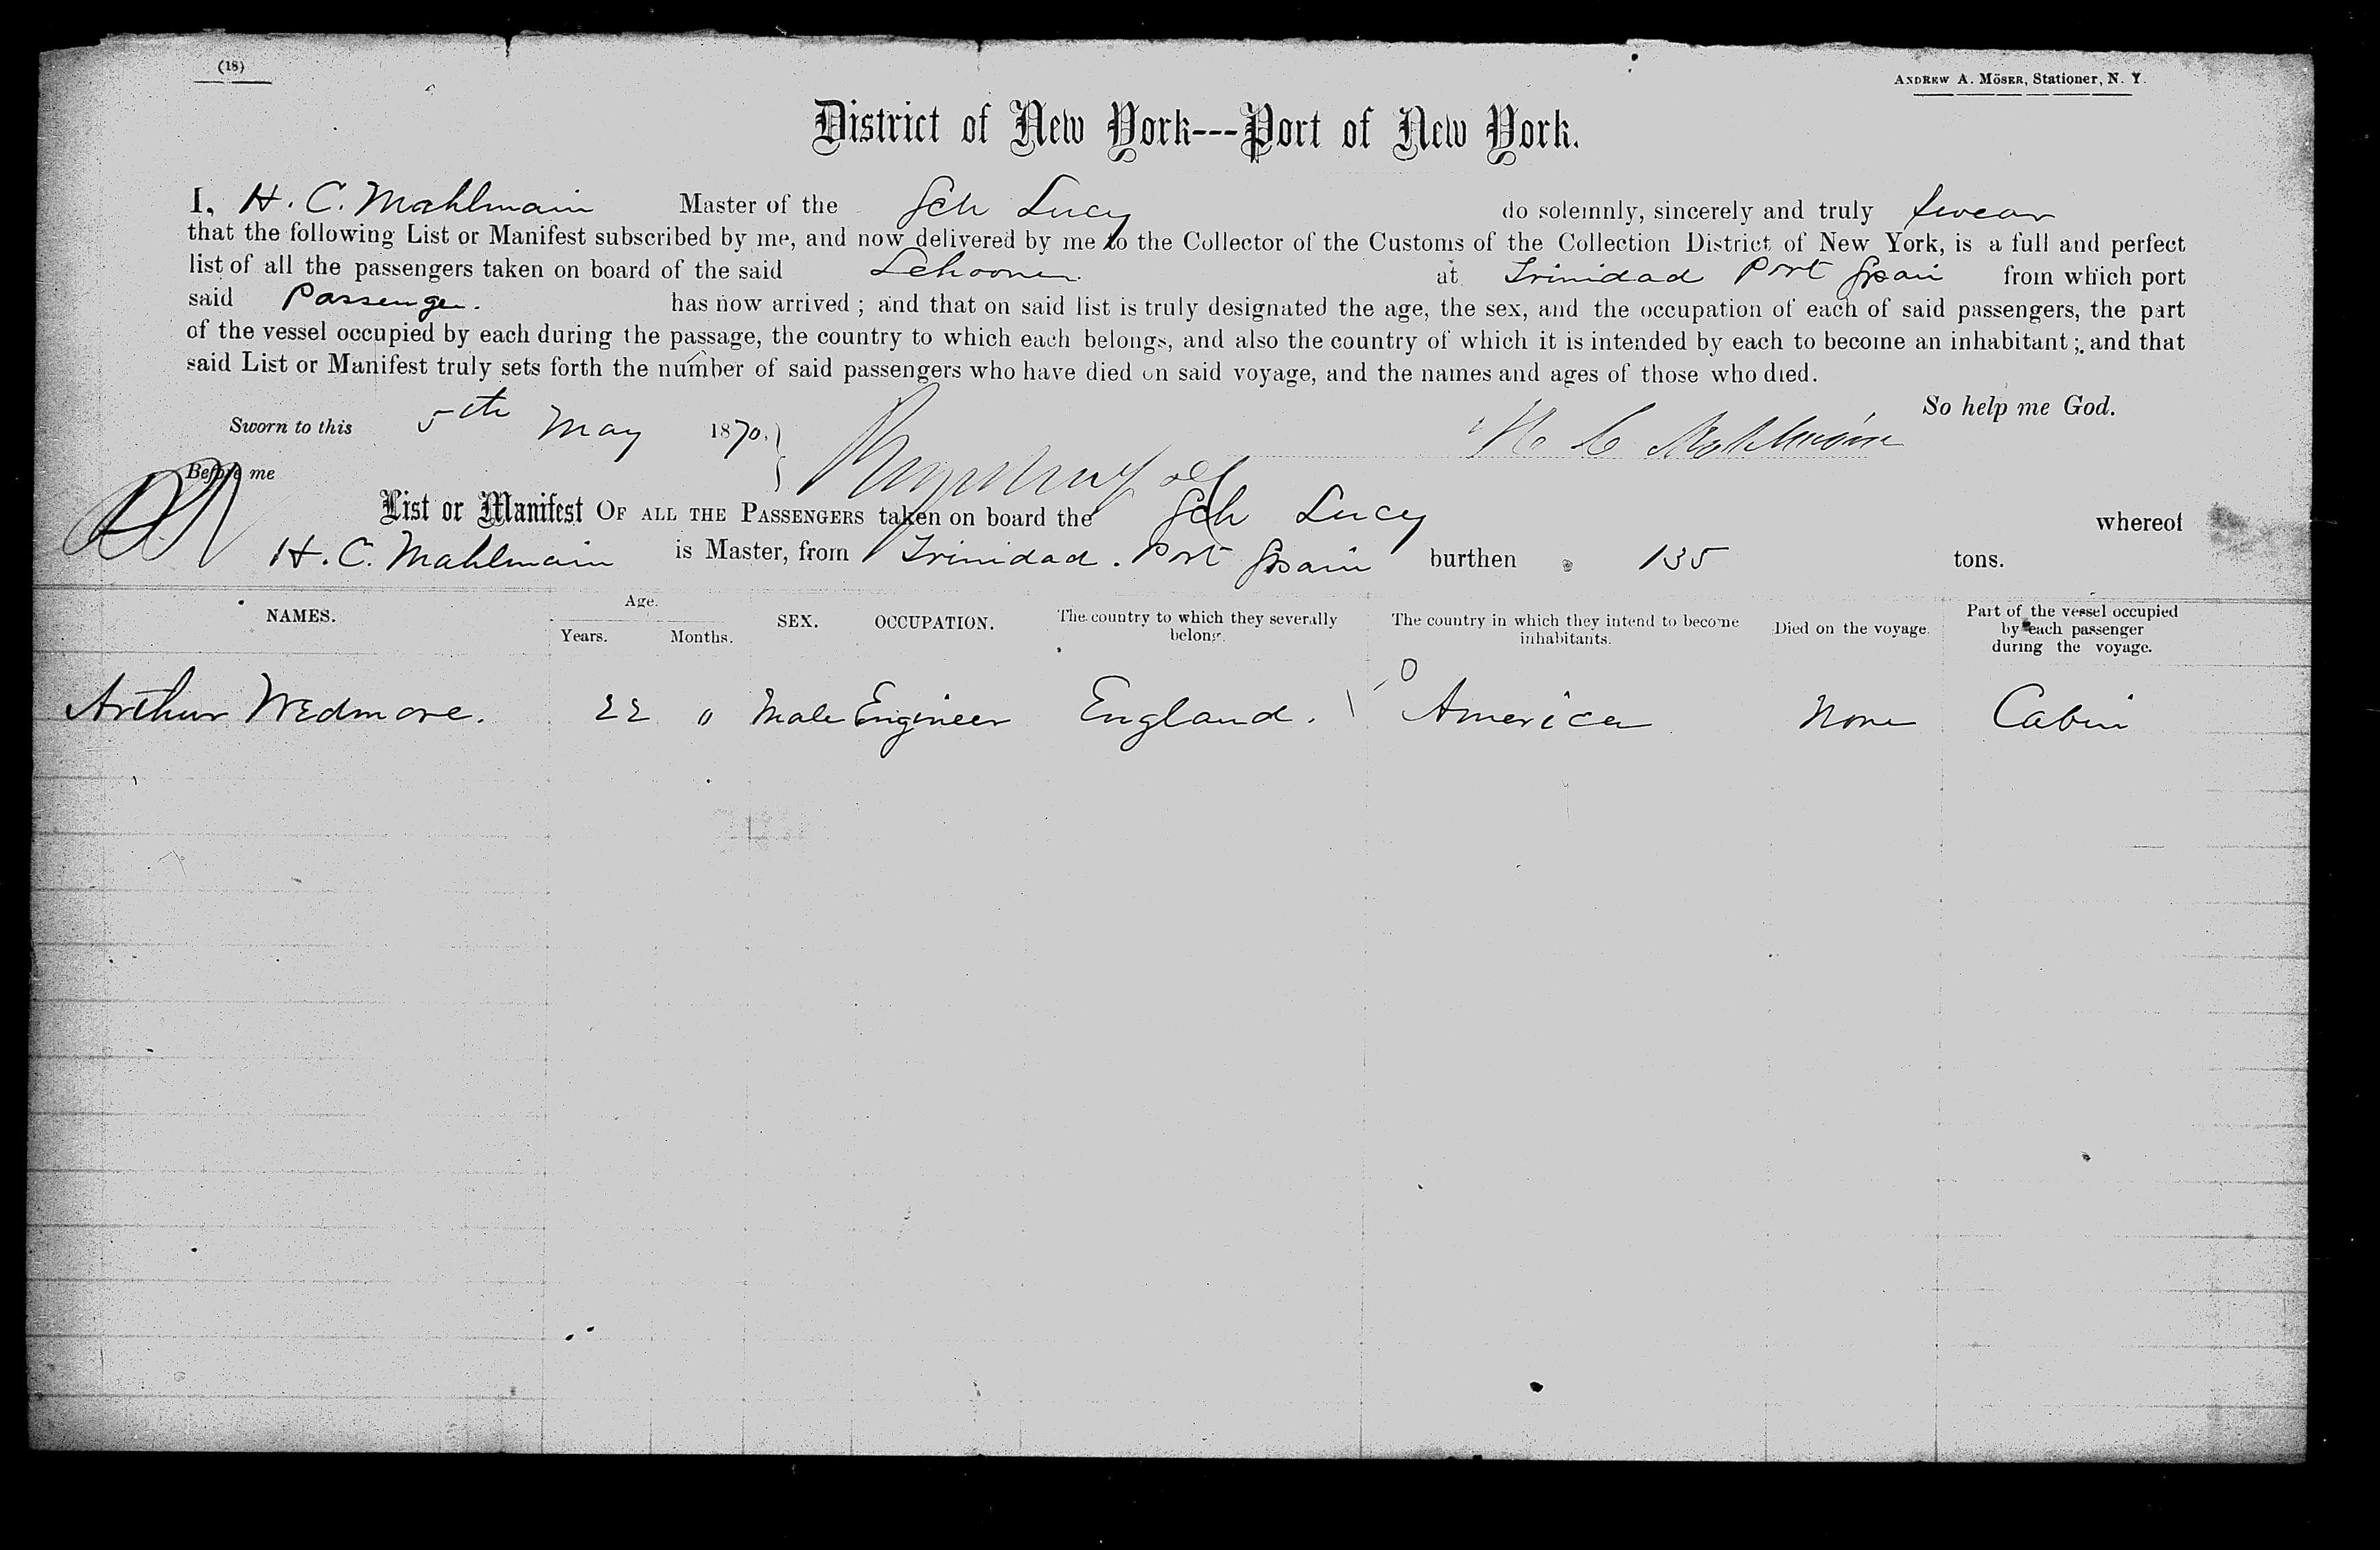 (18)
ANDREW A. MÖSER, Stationer, N. Y.
District of New York---Port of New York.
I, H. C. Mahlmain Master of the Sch Lucy do solemnly, sincerely and truly swear
that the following List or Manifest subscribed by me, and now delivered by me to the Collector of the Customs of the Collection District of New York, is a full and perfect
list of all the passengers taken on board of the said Schooner at Trinidad Port Spain from which port
said Passenger. has now arrived; and that on said list is truly designated the age, the sex, and the occupation of each of said passengers, the part
of the vessel occupied by each during the passage, the country to which each belongs, and also the country of which it is intended by each to become an inhabitant; and that
said List or Manifest truly sets forth the number of said passengers who have died on said voyage, and the names and ages of those who died.
So help me God.
Sworn to this 5th May 1870. H C Mahlmain
Before me
List or Manifest OF ALL THE PASSENGERS taken on board the Sch Lucy whereof
H. C. Mahlmain is Master, from Trinidad. Port Spain burthen 135 tons.
NAMES. Age. Years. Months. SEX. OCCUPATION. The country to which they severally belong. The country in which they intend to become inhabitants. Died on the voyage. Part of the vessel occupied by each passenger during the voyage.
Arthur Wedmore. 22 " Male Engineer England. America None Cabin